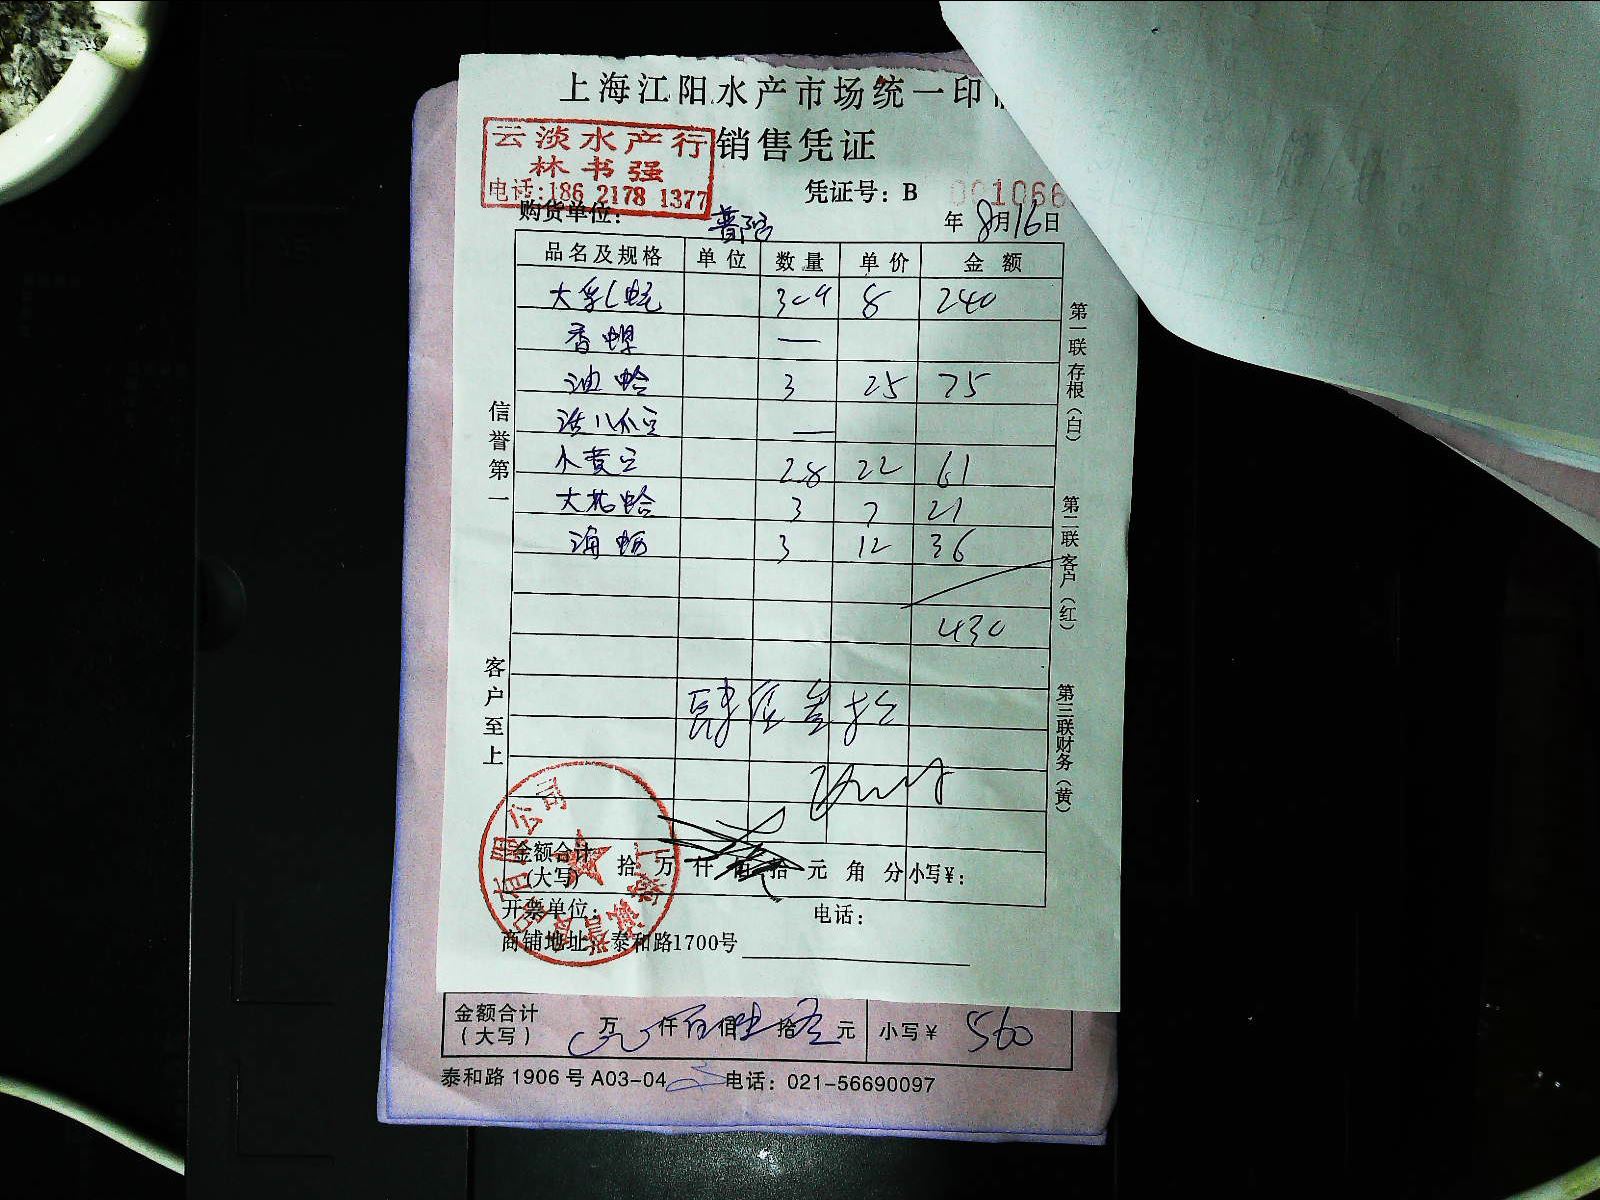 上海江阳水产市场统一印
云淡水产行
林书强
电话:186 2178 1377
销售凭证
凭证号: B 001066
购货单位: 普陀
年 8月16日
品名及规格 单位 数量 单价 金额
大 8 240
香螺 —
油蛤 3 25 75
活八爪 —
小黄 2.8 22 61
大花蛤 3 7 21
海蛎 3 12 36
430
肆佰叁拾
信誉第一
客户至上
第一联存根(白)
第二联客户(红)
第三联财务(黄)
金额合计(大写) 拾 万 仟 佰 拾 元 角 分 小写¥:
开票单位: 电话:
商铺地址: 泰和路1700号
金额合计(大写) 万 仟 佰 拾 元 小写¥ 560
泰和路 1906 号 A03-04 电话: 021-56690097